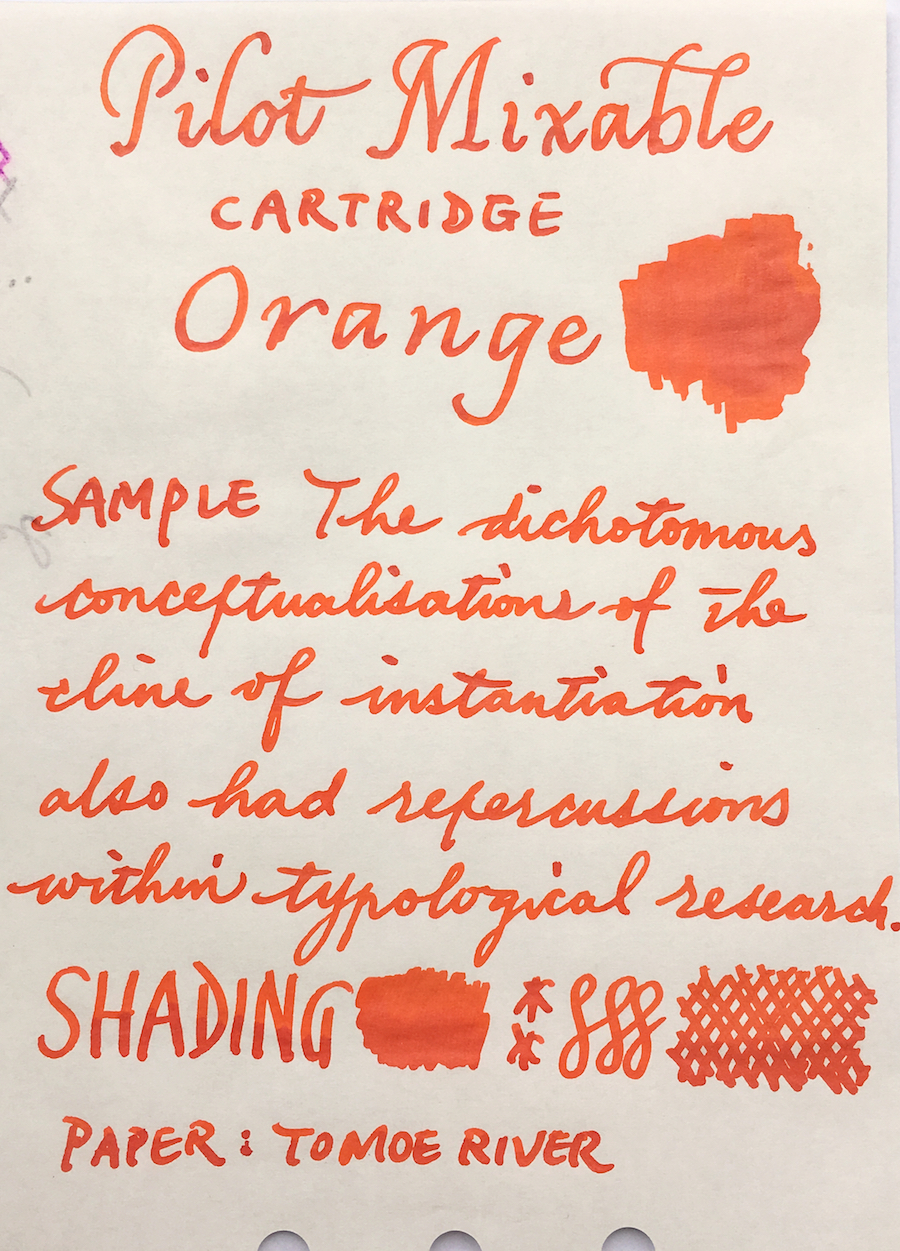 Pilot Mixable
CARTRIDGE
Orange
SAMPLE The dichotomous
conceptualisations of the
cline of instantiation
also had repercussions
within typological research.
SHADING
PAPER: TOMOE RIVER